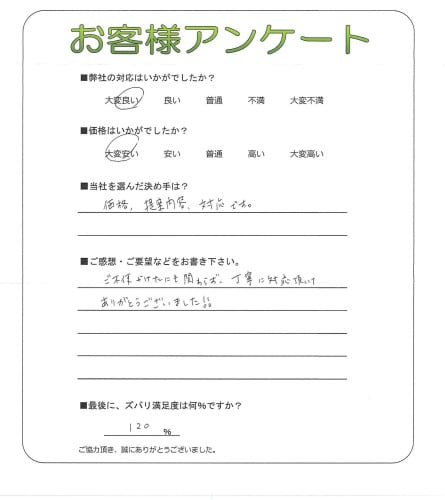 お客様アンケート
■弊社の対応はいかがでしたか？
大変良い 良い 普通 不満 大変不満
■価格はいかがでしたか？
大変安い 安い 普通 高い 大変高い
■当社を選んだ決め手は？
価格, 提案内容、対応です。
■ご感想・ご要望などをお書き下さい。
にも関わらず、丁寧に対応頂いて
ありがとうございました!!
■最後に、ズバリ満足度は何%ですか？
120 %
ご協力頂き、誠にありがとうございました。